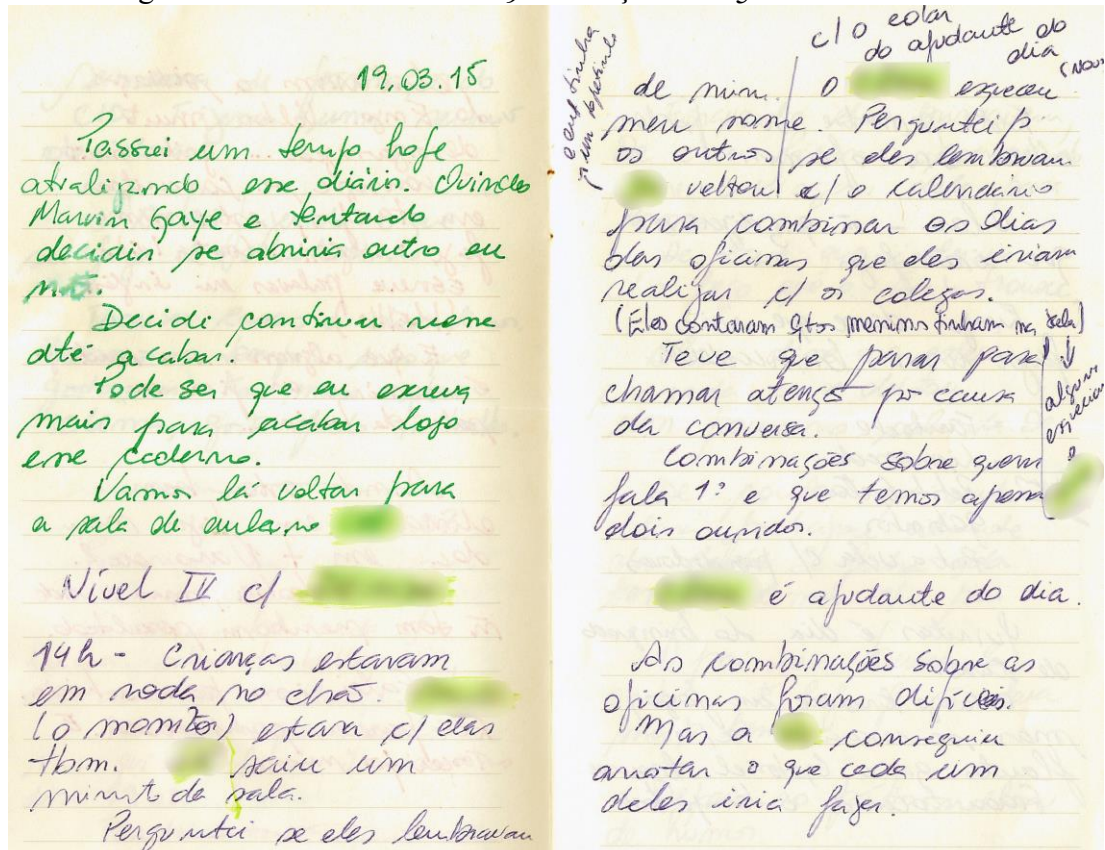 19.03.15
Passei um tempo hoje
atualizando esse diário. Ouvindo
Marvin Gaye e tentando
decidir se abriria outro ou
não.
Decidi continuar nesse
até acabar.
Pode ser que eu escreva
mais para acabar logo
esse caderno.
Vamos lá voltar para
a sala de aula, no
Nível IV c/
14h - Crianças estavam
em roda no chão.
(o monitor) estava c/ elas
tbm. saiu um
minuto da sala.
Perguntei se eles lembravam
c/ o colar
do ajudante do
dia
de mim. O esqueceu
meu nome. Perguntei p/
os outros se eles lembravam.
voltou c/ o calendário
para combinar os dias
das oficinas que eles iriam
realizar c/ os colegas.
(Eles contaram qtos meninos tinham na sala)
Teve que parar para
chamar atenção por causa
da conversa.
Combinações sobre quem
fala 1º e que temos apenas
dois ouvidos.
é ajudante do dia.
As combinações sobre as
oficinas foram difíceis.
Mas a conseguiu
anotar o que cada um
deles iria fazer.